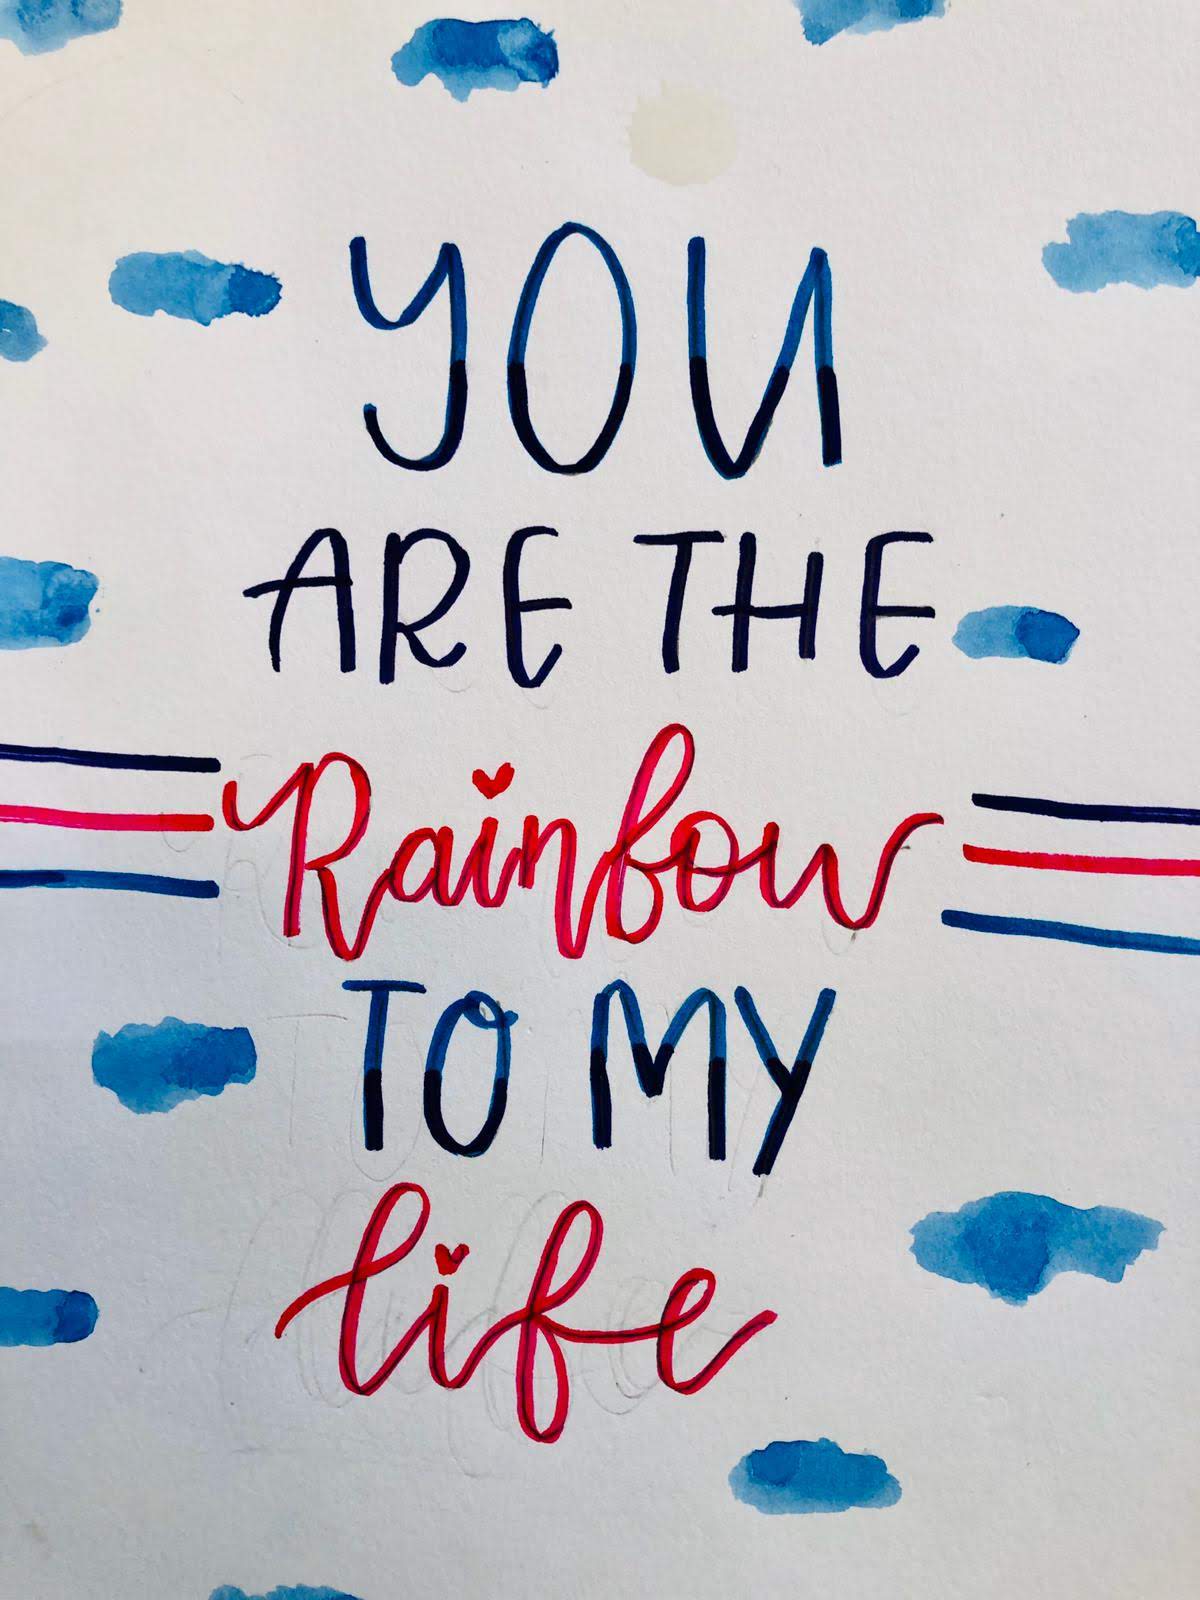 YOU
ARE THE
Rainbow
TO MY
life